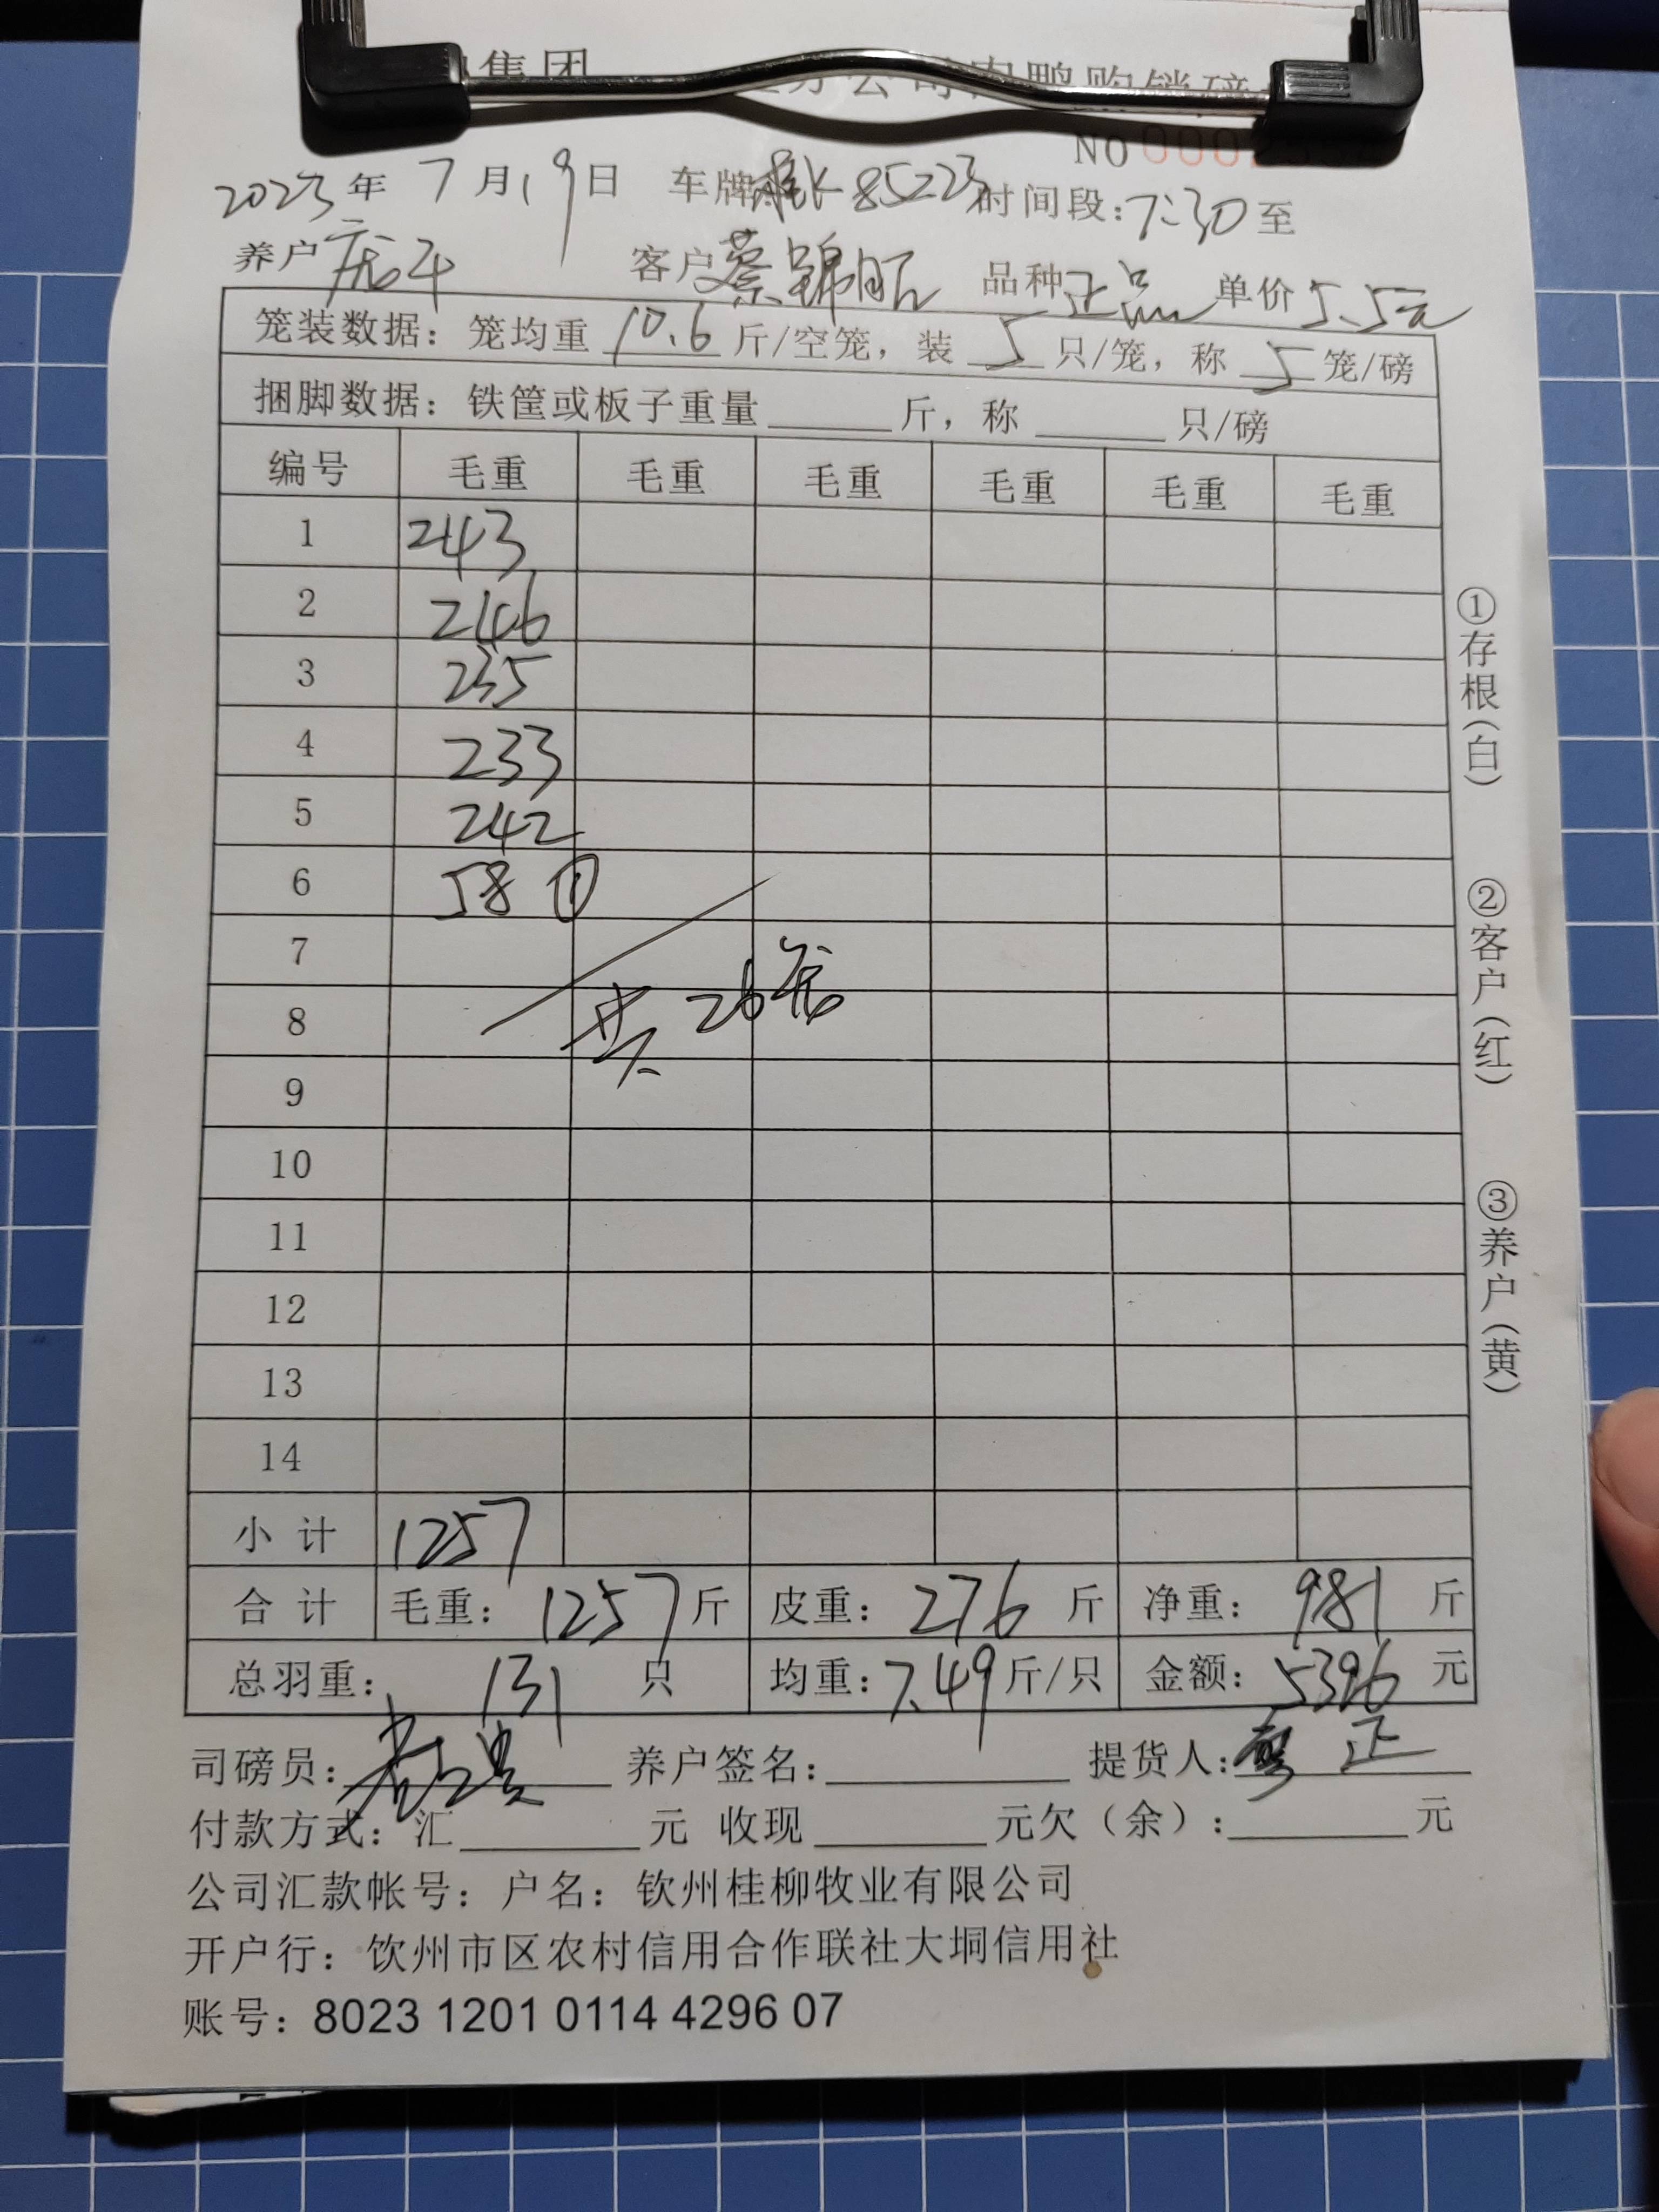 集团 分公司肉鸭购销磅
NO 000
2023年 7月19日 车牌 桂K 85223 时间段:7:30至
养户 客户 蔡锦昭 品种 正品 单价 5.5元
笼装数据：笼均重 10.6 斤/空笼，装 5 只/笼，称 5 笼/磅
捆脚数据：铁筐或板子重量 斤，称 只/磅
编号 毛重 毛重 毛重 毛重 毛重 毛重
1 243
2 246
3 235
4 233
5 242
6 58 ①
7
8 共 26笼
9
10
11
12
13
14
小 计 1257
合 计 毛重：1257斤 皮重：276 斤 净重：981 斤
总羽重： 131 只 均重：7.49斤/只 金额：5396 元
司磅员： 养户签名： 提货人： 正
付款方式：汇 元 收现 元欠（余）： 元
公司汇款帐号：户名：钦州桂柳牧业有限公司
开户行：饮州市区农村信用合作联社大垌信用社
账号：8023 1201 0114 4296 07
①存根（白）
②客户（红）
③养户（黄）